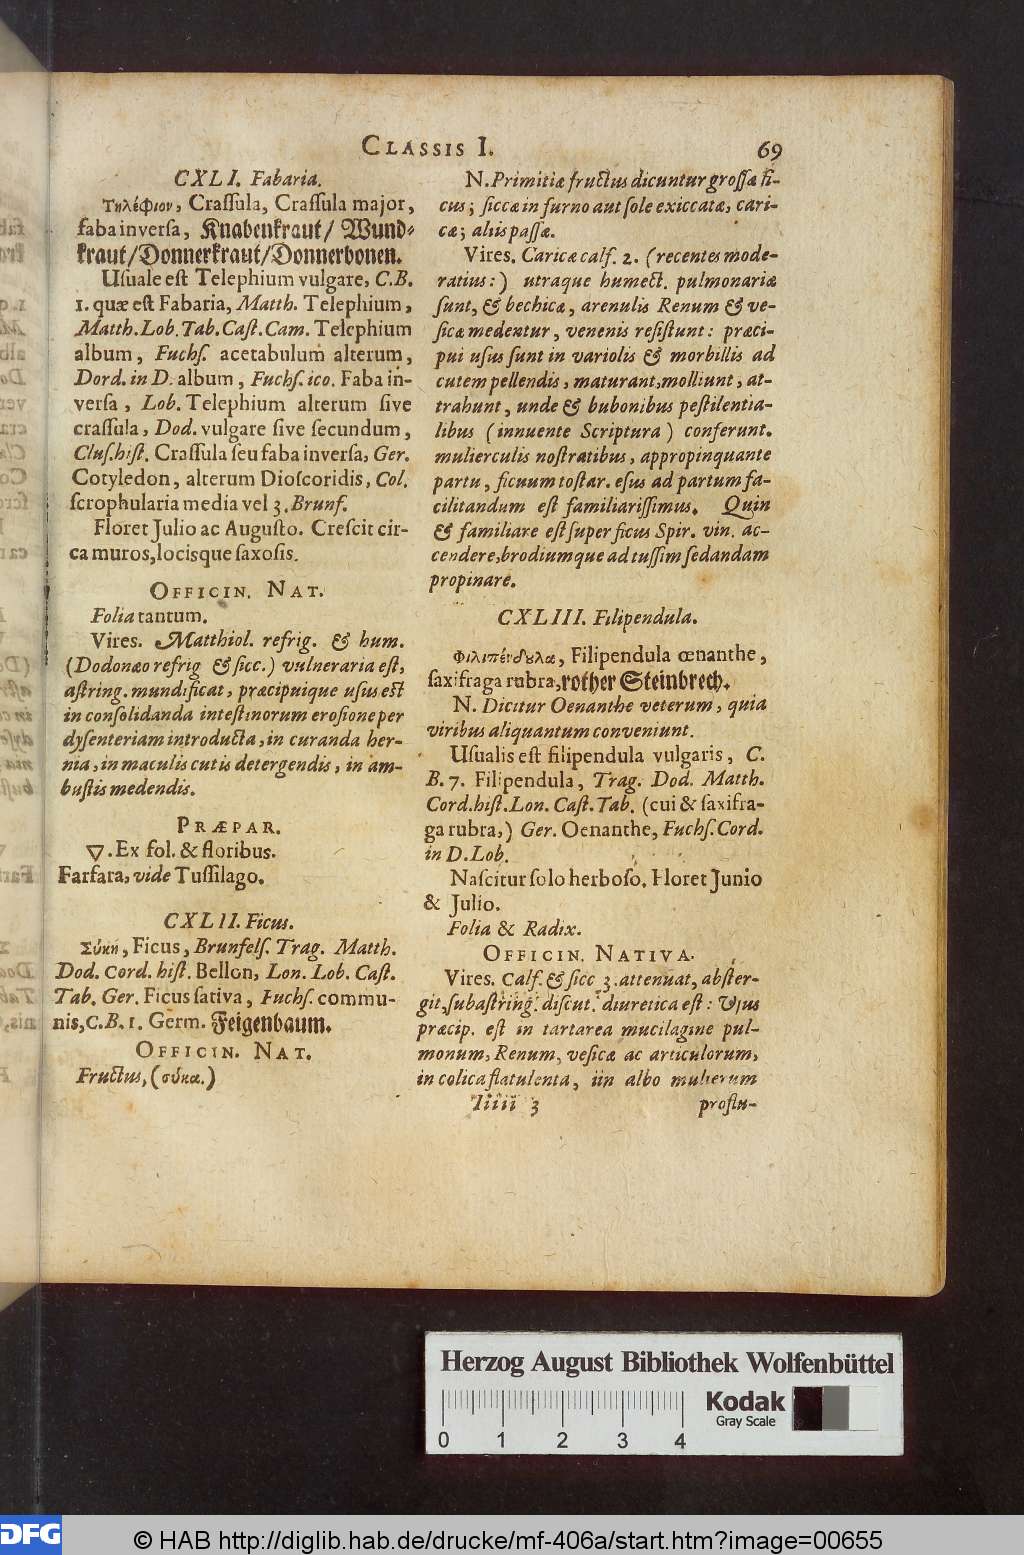 CLASSIS I.
69
CXLI. Fabaria.
Τηλέφιον, Craſſula, Craſſula major,
faba inverſa, Knabenkraut/ Wund-
kraut/Donnerkraut/Donnerbonen.
Uſuale eſt Telephium vulgare, C.B.
1. quæ eſt Fabaria, Matth. Telephium,
Matth. Lob. Tab. Caſt. Cam. Telephium
album, Fuchſ. acetabulum alterum,
Dord. in D. album, Fuchſ. ico. Faba in-
verſa, Lob. Telephium alterum ſive
craſſula, Dod. vulgare ſive ſecundum,
Cluſ. hiſt. Craſſula ſeu faba inverſa, Ger.
Cotyledon, alterum Dioſcoridis, Col.
ſcrophularia media vel 3. Brunf.
Floret Julio ac Auguſto. Creſcit cir-
ca muros, locisque ſaxoſis.
OFFICIN. NAT.
Folia tantum.
Vires. Matthiol. refrig. & hum.
(Dodonæo refrig & ſicc.) vulneraria eſt,
aſtring. mundificat, præcipuique uſus eſt
in conſolidanda inteſtinorum eroſione per
dyſenteriam introducta, in curanda her-
nia, in maculis cutis detergendis, in am-
buſtis medendis.
PRÆPAR.
▽. Ex fol. & floribus.
Farfara, vide Tuſſilago.
CXLII. Ficus.
Σύκη, Ficus, Brunfelſ. Trag. Matth.
Dod. Cord. hiſt. Bellon, Lon. Lob. Caſt.
Tab. Ger. Ficus ſativa, Fuchſ. commu-
nis, C.B. 1. Germ. Feigenbaum.
OFFICIN. NAT.
Fructus, (σύκα.)
N. Primitiæ fructus dicuntur groſſæ fi-
cus; ſiccæ in furno aut ſole exiccatæ, cari-
cæ; aliis paſſæ.
Vires. Caricæ calf. 2. (recentes mode-
ratius:) utraque humect. pulmonariæ
ſunt, & bechicæ, arenulis Renum & ve-
ſicæ medentur, venenis reſiſtunt: præci-
pui uſus ſunt in variolis & morbillis ad
cutem pellendis, maturant, molliunt, at-
trahunt, unde & bubonibus peſtilentia-
libus (innuente Scriptura) conferunt.
mulierculis noſtratibus, appropinquante
partu, ficuum toſtar. eſus ad partum fa-
cilitandum eſt familiariſſimus. Quin
& familiare eſt ſuper ficus Spir. vin. ac-
cendere, brodiumque ad tuſſim ſedandam
propinare.
CXLIII. Filipendula.
Φιλιπένδȣλα, Filipendula œnanthe,
ſaxifraga rubra, rother Steinbrech.
N. Dicitur Oenanthe veterum, quia
viribus aliquantum conveniunt.
Uſualis eſt filipendula vulgaris, C.
B. 7. Filipendula, Trag. Dod. Matth.
Cord. hiſt. Lon. Caſt. Tab. (cui & ſaxifra-
ga rubra,) Ger. Oenanthe, Fuchſ. Cord.
in D. Lob.
Naſcitur ſolo herboſo. Floret Junio
& Julio.
Folia & Radix.
OFFICIN. NATIVA.
Vires. Calf. & ſicc 3. attenuat, abſter-
git, ſubaſtring. diſcut. diuretica eſt: Uſus
præcip. eſt in tartarea mucilagine pul-
monum, Renum, veſicæ ac articulorum,
in colica flatulenta, iin albo mulierum
Iiiii 3
proflu-
Herzog August Bibliothek Wolfenbüttel
Kodak
Gray Scale
0 1 2 3 4
DFG
© HAB http://diglib.hab.de/drucke/mf-406a/start.htm?image=00655